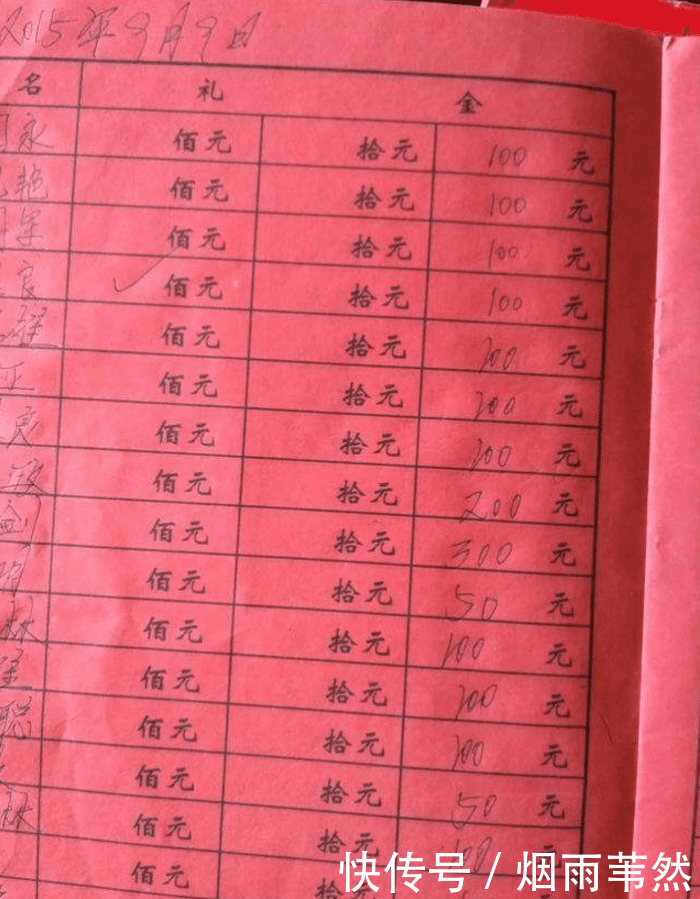 2015年9月9日
名 礼 金
永 佰元 拾元 100 元
艳 佰元 拾元 100 元
军 佰元 拾元 100 元
良 佰元 拾元 100 元
佰元 拾元 200 元
正 佰元 拾元 200 元
良 佰元 拾元 200 元
佰元 拾元 200 元
剑 佰元 拾元 300 元
佰元 拾元 50 元
林 佰元 拾元 100 元
佰元 拾元 100 元
聪 佰元 拾元 100 元
佰元 拾元 50 元
林 佰元 拾元 100
佰元 拾元
快传号 / 烟雨苇然